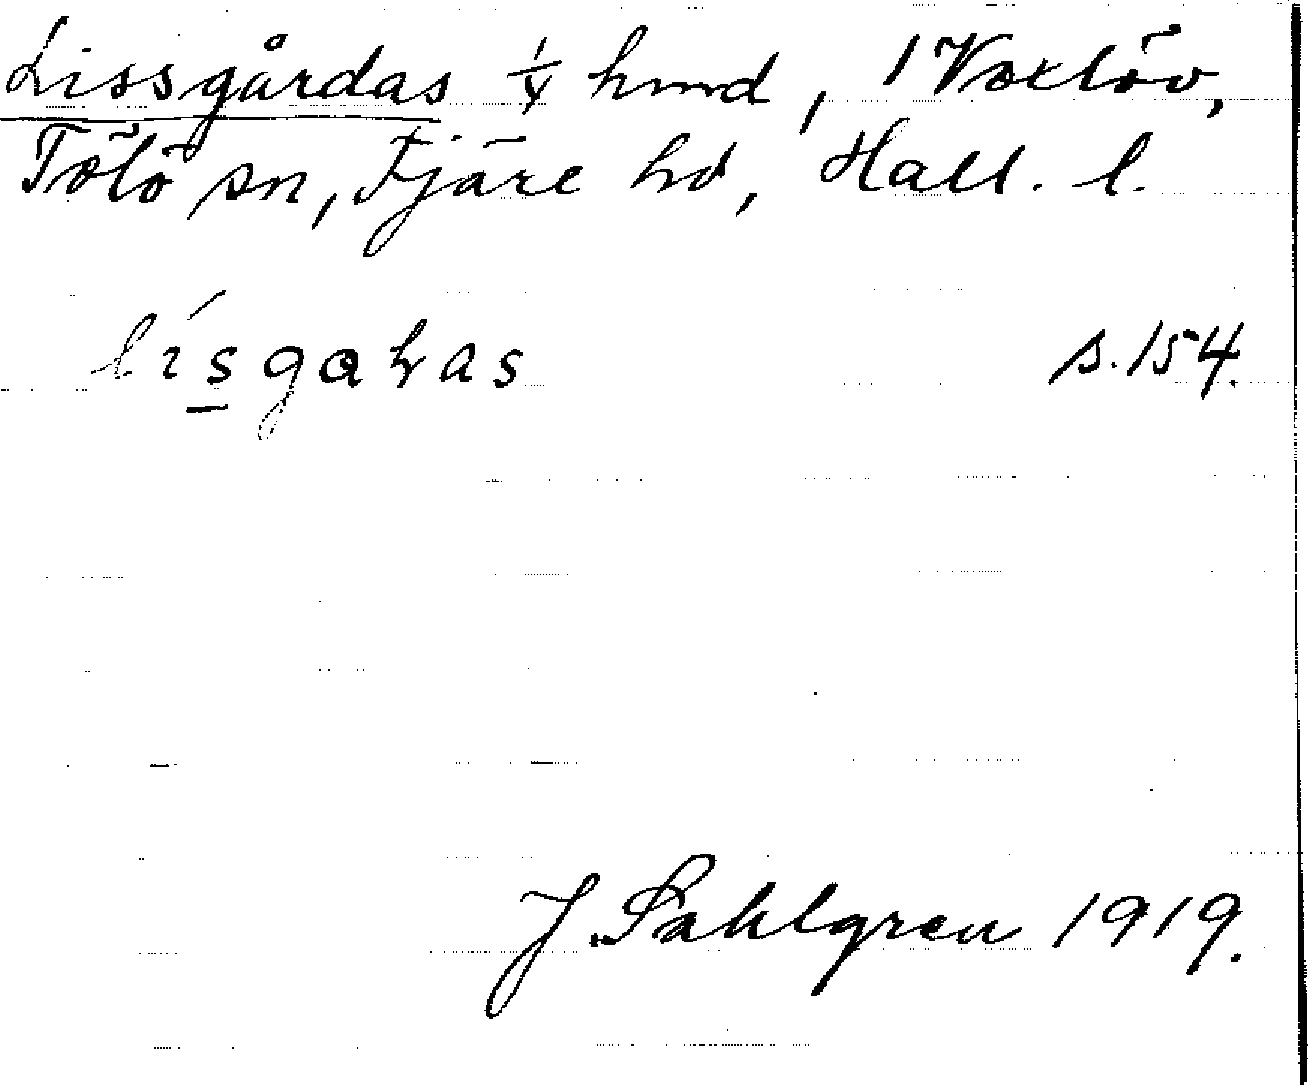 Lissgårdas ¼ hmd, 1 Voxlöv,
Tölö sn, Fjäre hd, Hall. l.
lísgaras s. 154.
J. Sahlgren 1919.